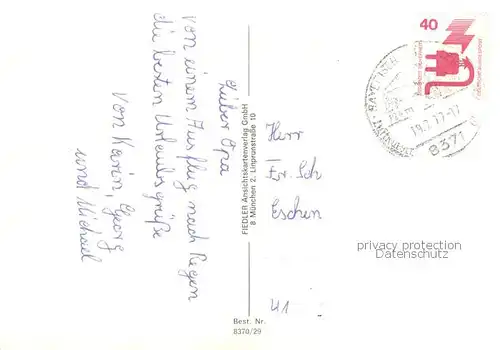 Lieber Opa
Von einem Ausflug nach Regen
die besten Urlaubsgrüße
Von Karin, Georg
und Michael
FIEDLER Ansichtskartenverlag GmbH
8 München 2, Linprunstraße 10
Best. Nr.
8370/29
40
19.7.77-17
8371
Herr
Fr. Sch
Eschen
41
privacy protection
Datenschutz